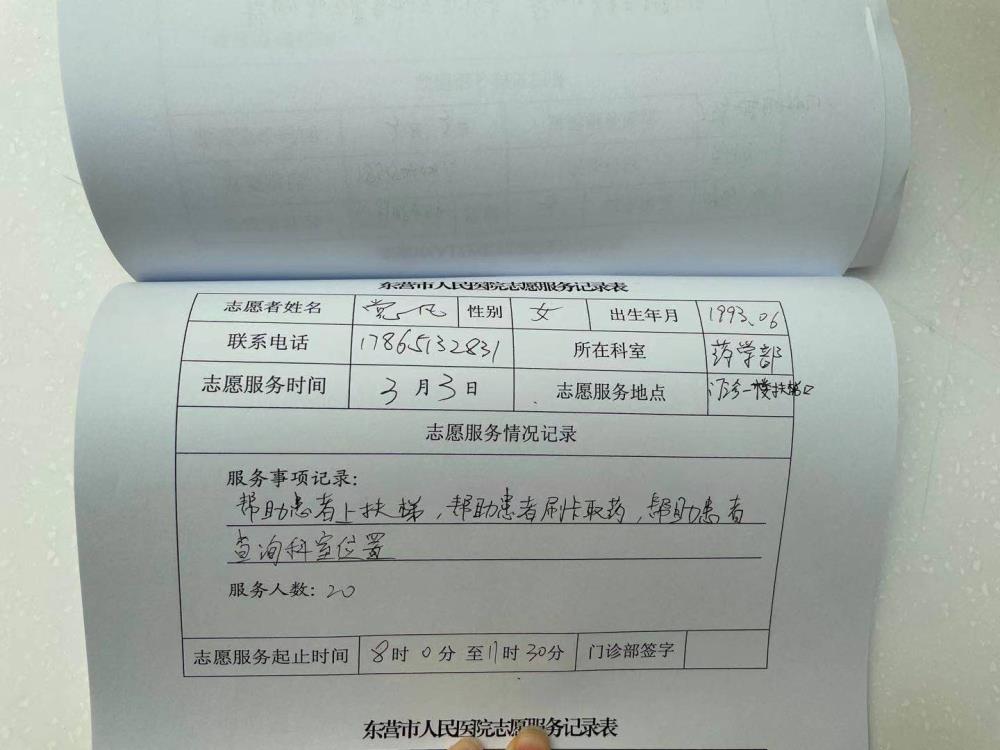 东营市人民医院志愿服务记录表
志愿者姓名 党凡 性别 女 出生年月 1993.06
联系电话 17865132831 所在科室 药学部
志愿服务时间 3月3日 志愿服务地点 门诊一楼扶梯口
志愿服务情况记录
服务事项记录:
帮助患者上扶梯,帮助患者刷卡取药,帮助患者
查询科室位置
服务人数:20
志愿服务起止时间 8时0分至11时30分 门诊部签字
东营市人民医院志愿服务记录表